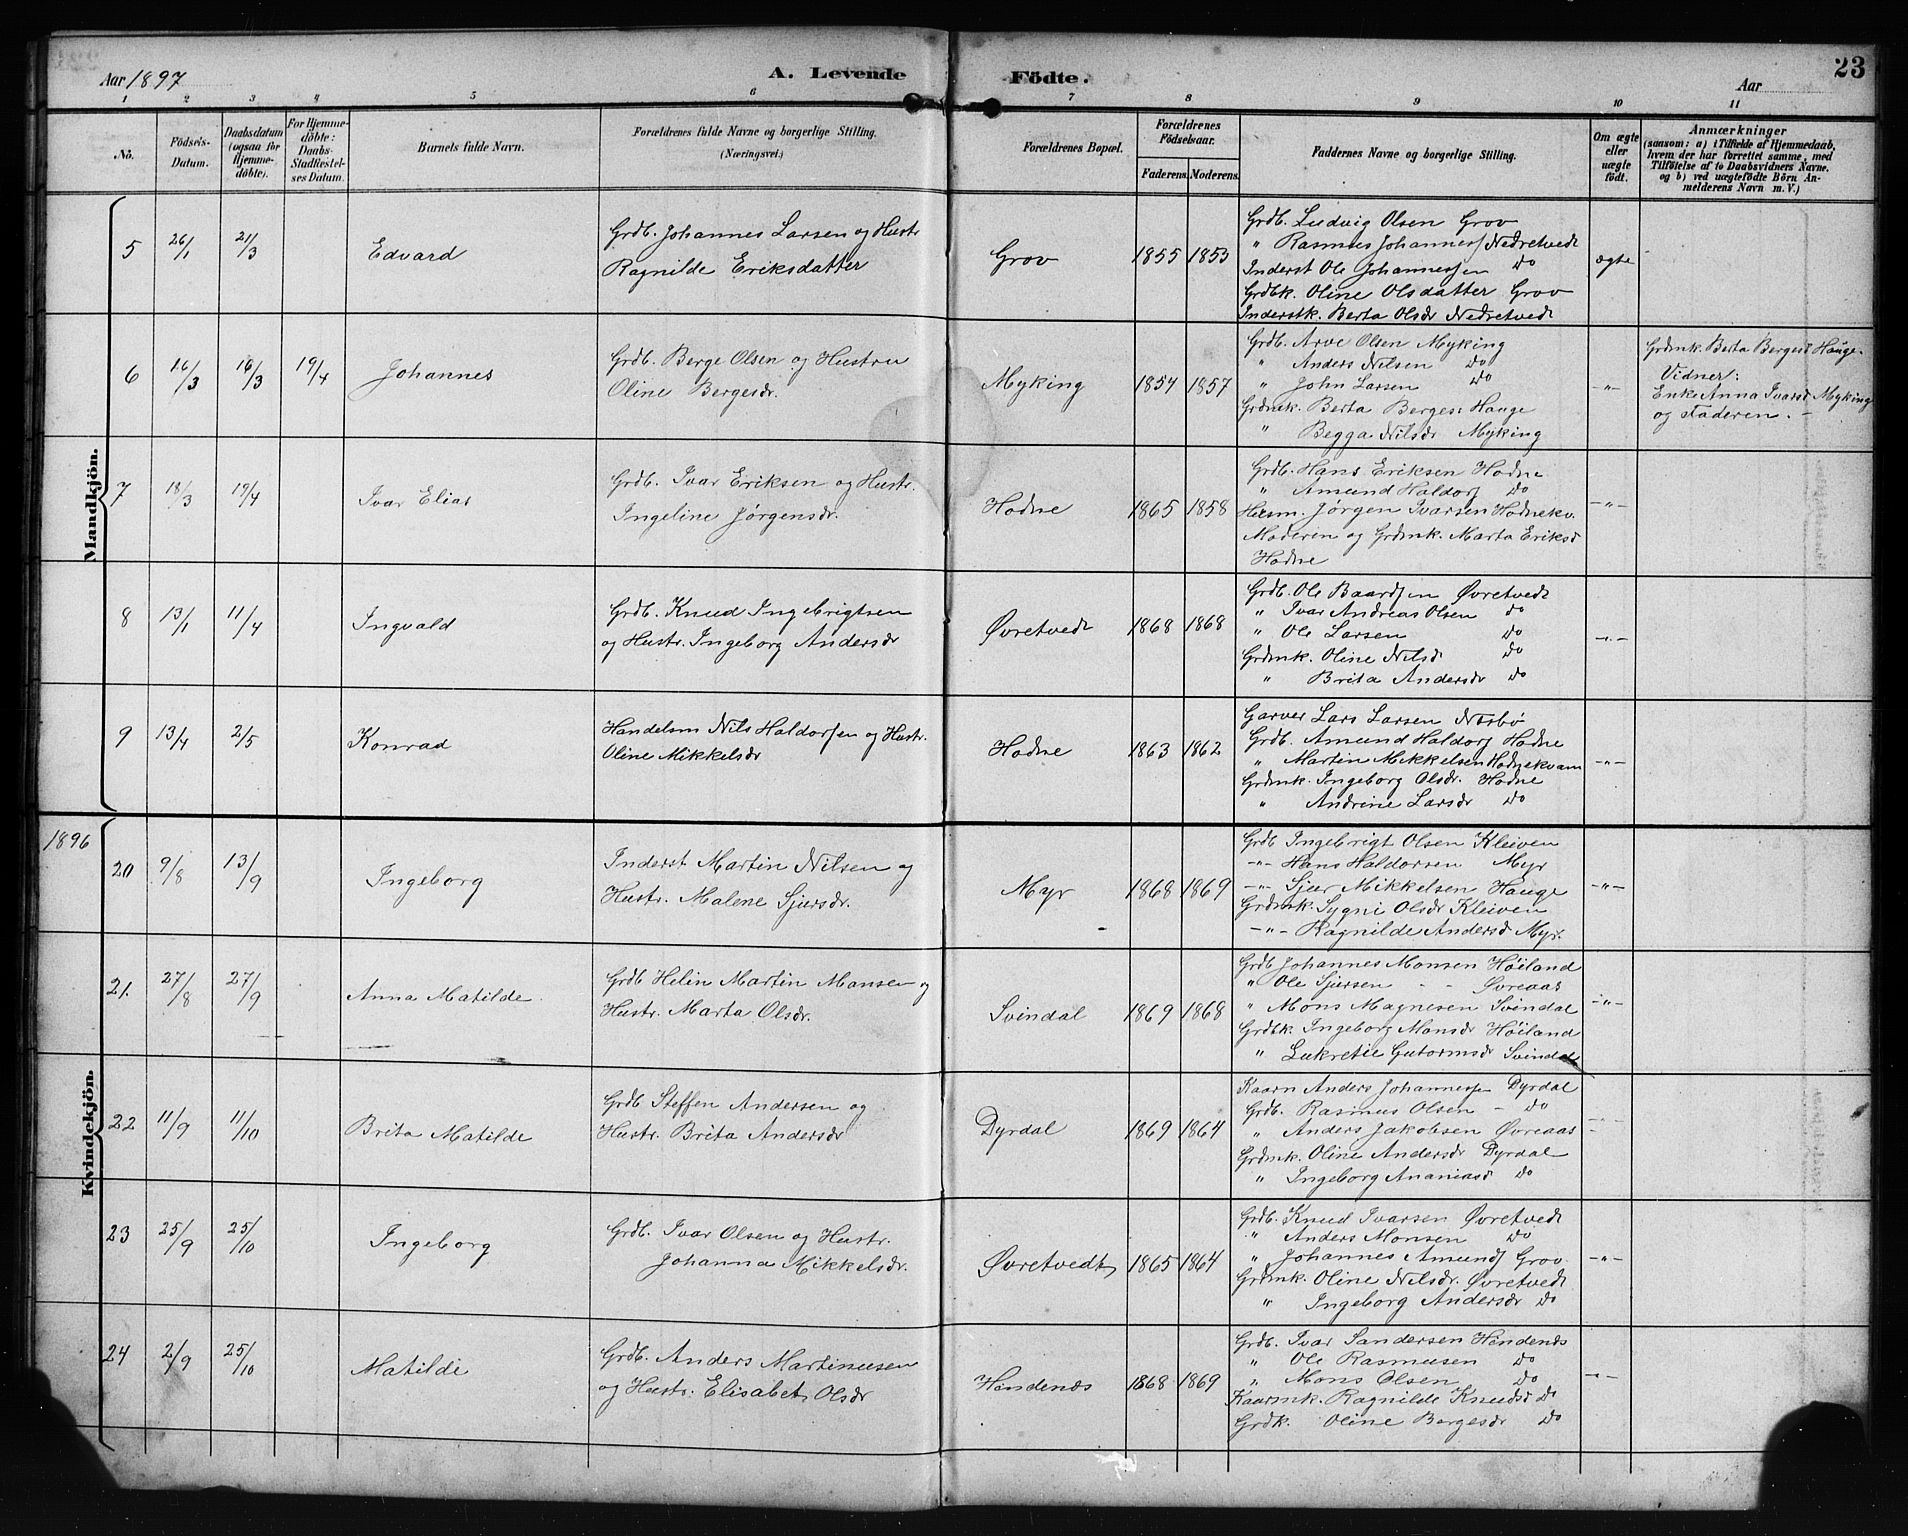 Aar 1897
A. Levende
Födte.
Aar
23
1 2 3 4 5 6 7 8 9 10 11
No.
Födsels-
Datum.
Daabsdatum
(ogsaa for
Hjemme-
döbte).
For Hjemme-
döbte:
Daabs-
Stadfæstel-
ses Datum.
Barnets fulde Navn.
Forældrenes fulde Navne og borgerlige Stilling.
(Næringsvei.)
Forældrenes Bopæl.
Forældrenes
Födselsaar.
Faderens. Moderens.
Faddernes Navne og borgerlige Stilling.
Om ægte
eller
uægte
födt.
Anmærkninger
(saasom: a) i Tilfælde af Hjemmedaab,
hvem der har forrettet samme, med
Tilföielse af to Daabsvidners Navne.
og b) ved uægtefödte Börn An-
melderens Navn m. V.)
Mandkjön.
5 26/1 21/3 Edvard
Grdb. Johannes Larsen og Hustr
Ragnilde Eriksdatter
Grov 1855 1853
Grdb. Ludvig Olsen Grov
" Rasmus Johanness Nedretvedt
Inderst Ole Johannessen Do
Grdbk. Oline Olsdatter Grov
Inderstk. Berta Olsdr Nedretvedt
ægte
6 16/3 16/3 19/4 Johannes
Grdb. Berge Olsen og Hustru
Oline Bergesdr.
Myking 1854 1857
Grdb. Arve Olsen Myking
" Anders Nilsen Do
" John Larsen Do
Grdmk. Berta Berges: Hauge
" Begga Nilsdr Myking
-"-
Grdmk. Berta Bergesd Hauge.
Vidner:
Enke Anna Ivarsd Myking
og Faderen. -
7 18/3 19/4 Ivar Elias
Grdb. Ivar Eriksen og Hustr.
Ingeline Jørgensdr.
Hodne 1865 1858
Grdb. Hans Eriksen Hodne
" Amund Haldors Do
Husm. Jørgen Ivarsen Hodnekv.
Moderen og Grdmk. Marta Eriksd
Hodne
-"-
8 13/1 11/4 Ingvald
Grdb. Knud Ingebrigtsen
og Hustr. Ingeborg Andersdr
Øvretvedt 1868 1868
Grdb. Ole Baardsen Øvretvedt
" Ivar Andreas Olsen Do
" Ole Larsen Do
Grdmk. Oline Nilsd Do
" Brita Andersdr Do
-"-
9 13/4 2/5 Konrad
Handelsm Nils Haldorsen og Hustr.
Oline Mikkelsdr
Hodne 1863 1862
Garver Lars Larsen Nesbø
Grdb. Amund Haldors Hodne
" Martin Mikkelsen Hodnekvam
Grdmk. Ingeborg Olsdr. Hodne
" Andrine Larsdr Do
-"-
1896
Kvindekjön.
20 9/8 13/9 Ingeborg
Inderst Martin Nilsen og
Hustr. Malene Sjursdr.
Myr 1868 1869
Grdb Ingebrigt Olsen Kleiven
-"- Hans Haldorsen Myr
-"- Sjur Mikkelsen Hauge
Grdmk. Sygni Olsdr Kleiven
-"- Ragnilde Andersd Myr.
-"-
21. 27/8 27/9 Anna Matilde
Grdb Helin Martin Mansen og
Hustr. Marta Olsdr.
Svindal 1869 1868
Grdb Johannes Monsen Høiland
" Ole Sjursen - - Øvreaas
" Mons Magnesen Svindal
Grdbk. Ingeborg Monsdr Høiland
" Lukretie Gutormsdr Svindal
-"-
22 11/9 11/10 Brita Matilde
Grdb Steffen Andersen og
Hustr. Brita Andersdr
Dyrdal 1869 1864
Kaarm Anders Johannessen Dyrdal
Grdb. Rasmus Olsen - Do
" Anders Jakobsen Øvreaas
Grdmk. Oline Andersdr Dyrdal
" Ingeborg Ananiasd Do
-"-
23 25/9 25/10 Ingeborg
Grdb. Ivar Olsen og Hustr.
Johanna Mikkelsdr.
Øvretvedt 1865 1864
Grdb. Knud Ivarsen Øvretvedt
" Anders Monsen Do
" Johannes Amunds Grov
Grdmk. Oline Nilsdr. Øvretvedt
" Ingeborg Andersdr Do
-"-
24 2/9 25/10 Matilde
Grdb. Anders Martinusen
og Hustr. Elisabet Olsdr
Hindenes 1868 1869
Grdb. Ivar Sandersen Hindenes
" Ole Rasmusen Do
" Mons Olsen Do
Kaarmk. Ragnilde Knudsd Do
Grdk. Oline Bergesdr Do
-"-